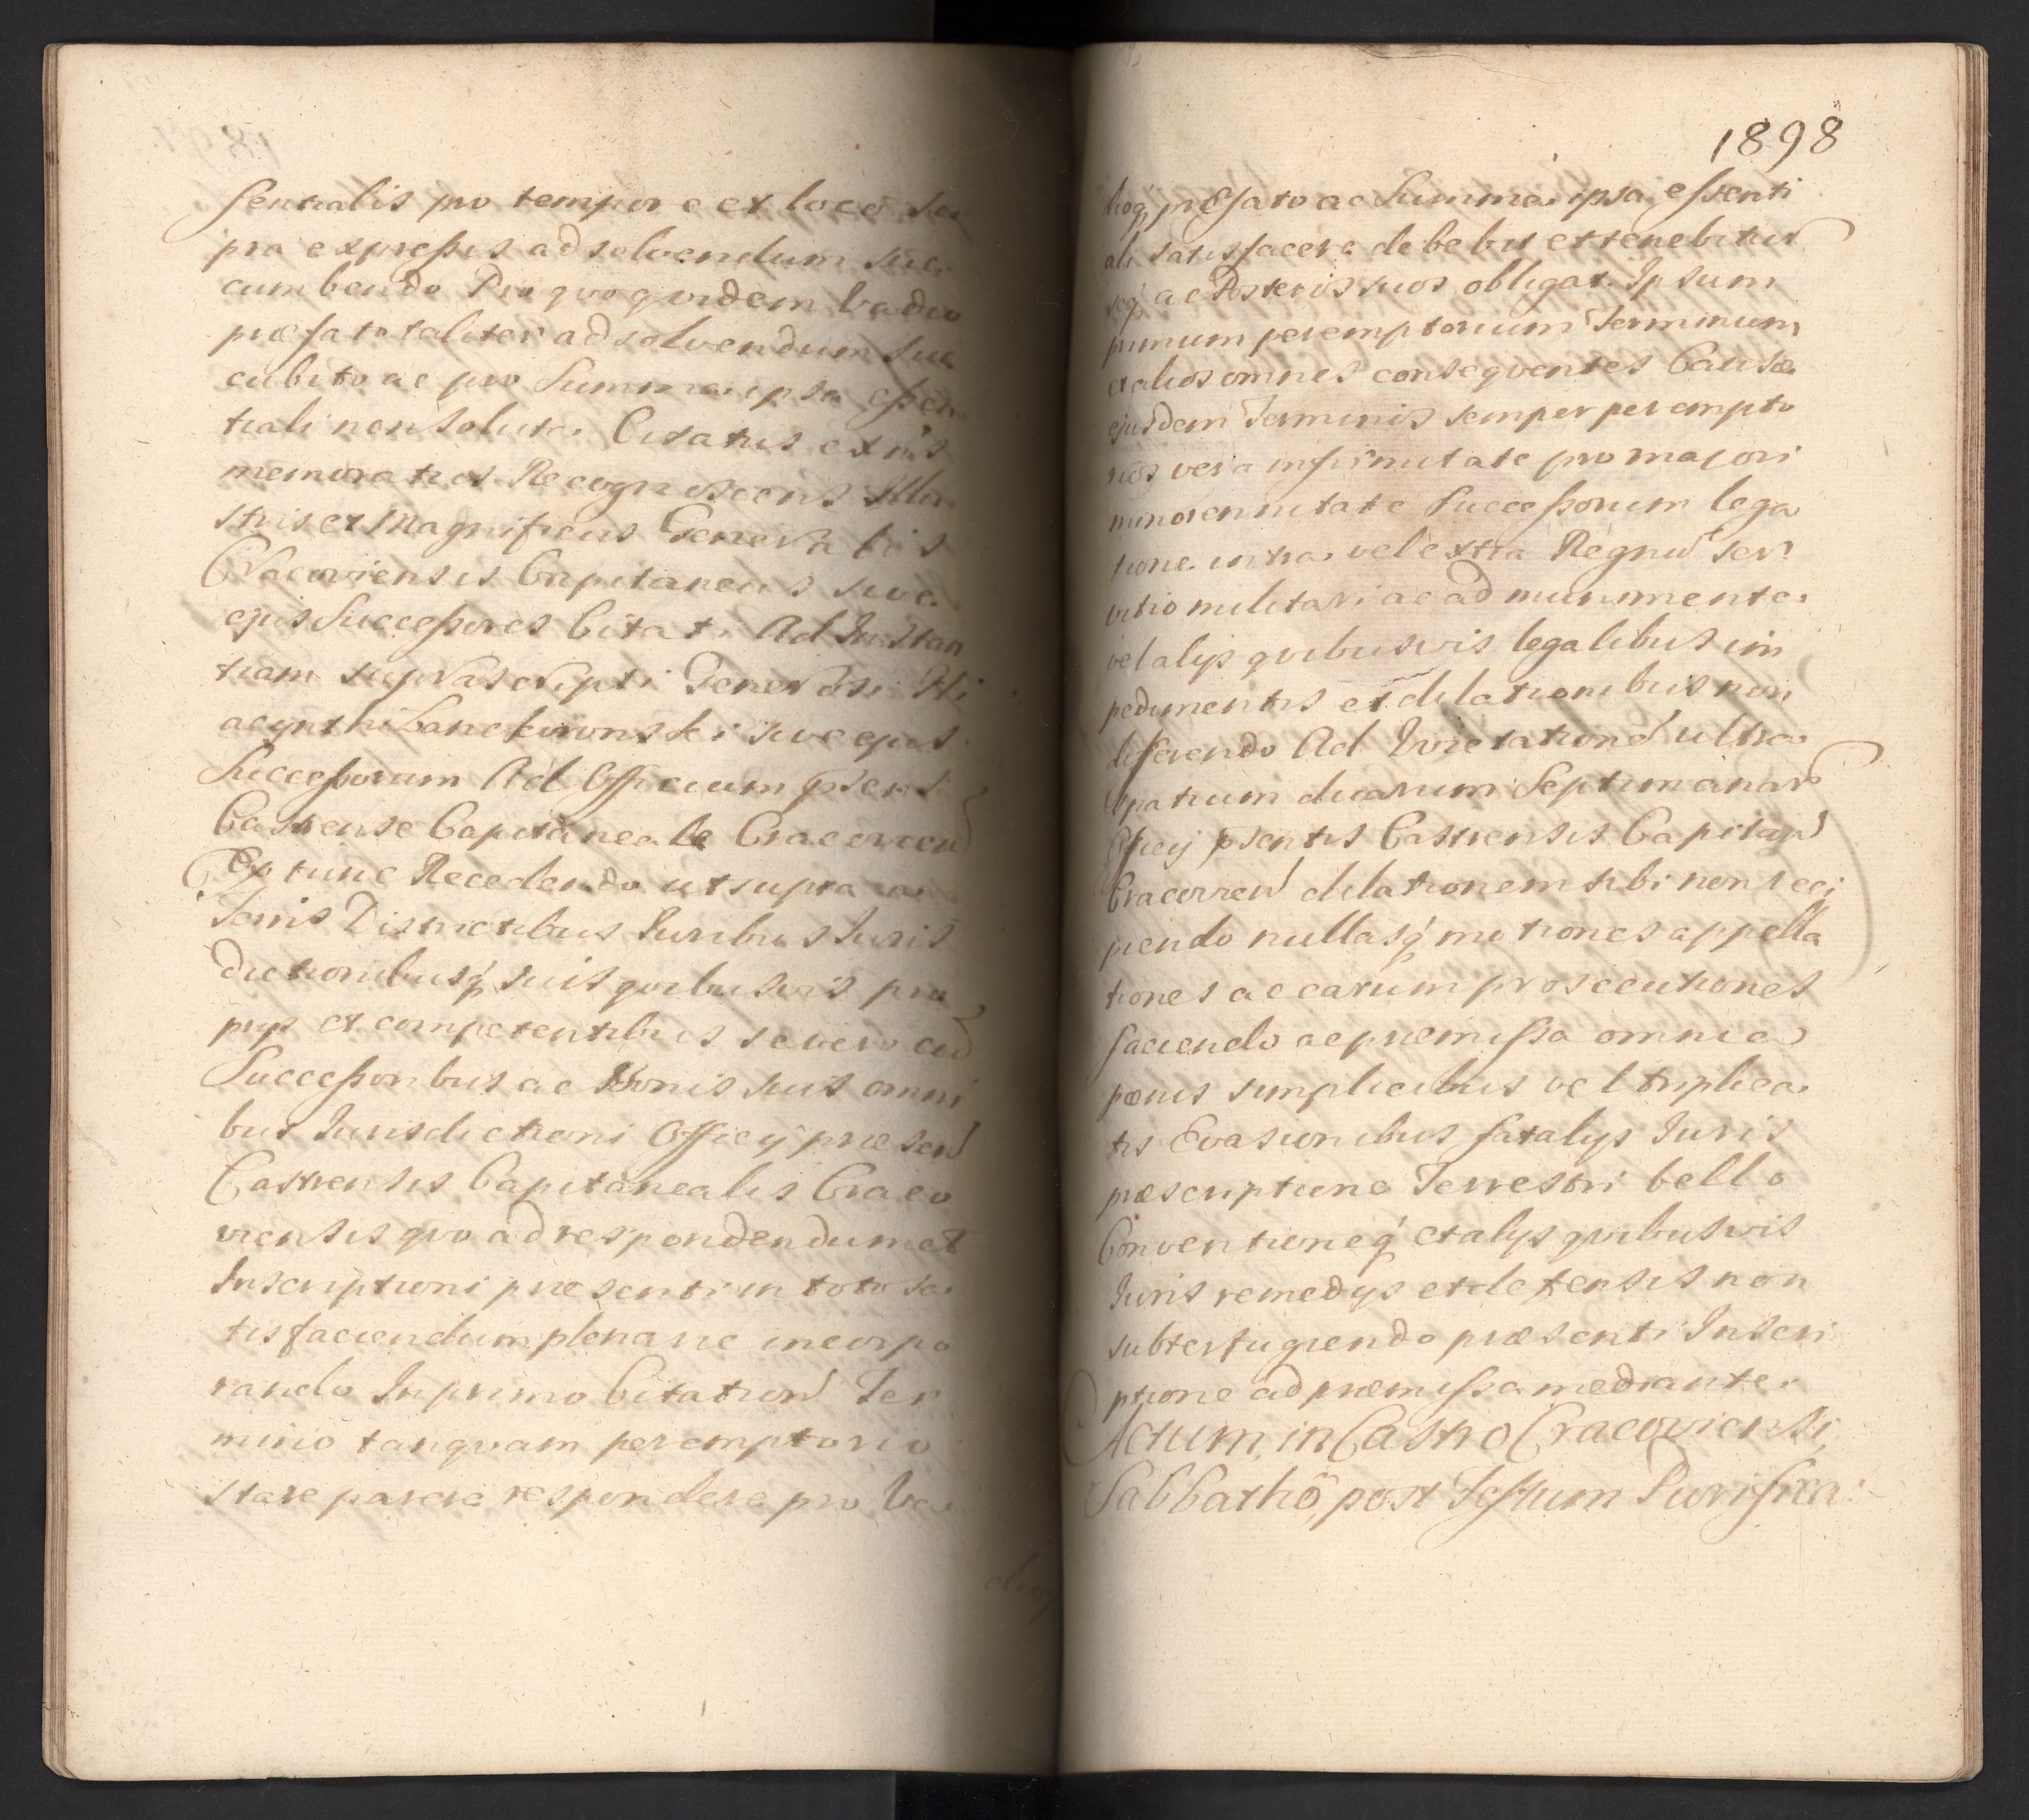 sentialis pro tempore et loco su
pra expressis adsolvendum suc
cumbendo Pro quoquidem Vadio
præfato taliter adsolvendum suc
cubito ac pro Summa ipsa essen
tiali non soluta Citatus
memoratus Recognoscens Illu
stris et Magnificus Generalis
Cracoviensis Capitaneus sive
ejus Successores Citati Ad Instan
tiam suprascripti Generosi Hi
acynthi Lanckoronski sive ejus
Successorum Ad Officium psens
Castrense Capitaneale Cracovien
Ex tunc Recedendo ut supra a
Terris Districtibus Juribus Juris
dictionibusq́ suis quibusvis pro
prijs et competentibus severo cū
Successoribus ac Bonis suis omni
bus Jurisdictioni Officij præsen
Castrensis Capitanealis Craco
viensis quo ad respondendum et
Inscriptioni præsenti in toto sa
tisfaciendum plenarie incorpo
rando In primo Citationū Ter
mino tanquam peremptorio
stare parere respondere pro Va
1898
dioq præfato ac Summa ipsa essenti
ali satisfacere debebit et tenebitur
seq́ ac Posteros suos obligat. Ipsum
primum peremptorium Terminum
et alios omnes consequentes Causæ
ejusdem Terminos semper perempto
rios vera infirmitate pro majori
minorennitate Successorum lega
tione intra vel extra Regnū ser
vitio militari ac ad munimenta
vel alijs quibusvis legalibus im
pedimentis et dilationibus non
differendo Ad Evictationē ultra
spatium duarum Septimanarū
Officij psentis Castrensis Capitan
Cracovien dilationem sibi non reci
piendo nullasq́ motiones appella
tiones ac earum prosecutiones
faciendo ac præmissa omnia
pœnis simplicibus vel triplica
tis Evasionibus fatalijs Juris
præscriptione Terrestri bello
Conventioneq́ et alijs quibusvis
Juris remedijs et defensis non
subterfugiendo præsenti Inscri
ptione ad præmissa mediante.
Actum in Castro Cracoviensi
Sabbathō post Festum Purifica